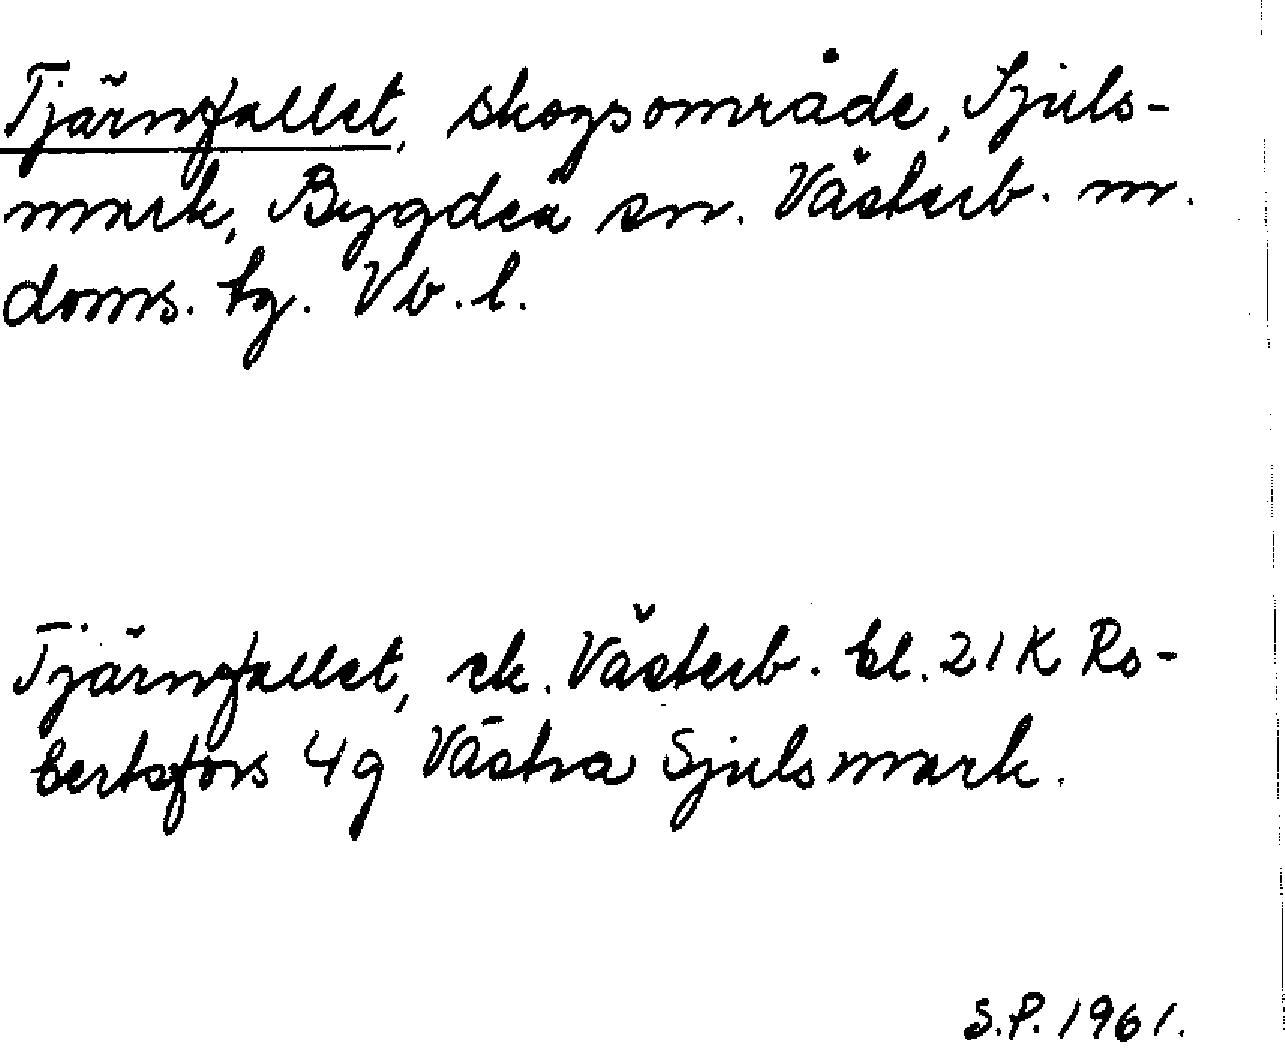 Tjärnfallet, skogsområde, Sjuls-
mark, Bygdeå sn. Västerb. n.
doms. tg. Vb. l.
Tjärnfallet, ek. Västerb. bl. 21K Ro-
bertsfors 4g Västra Sjulsmark.
S.P. 1961.